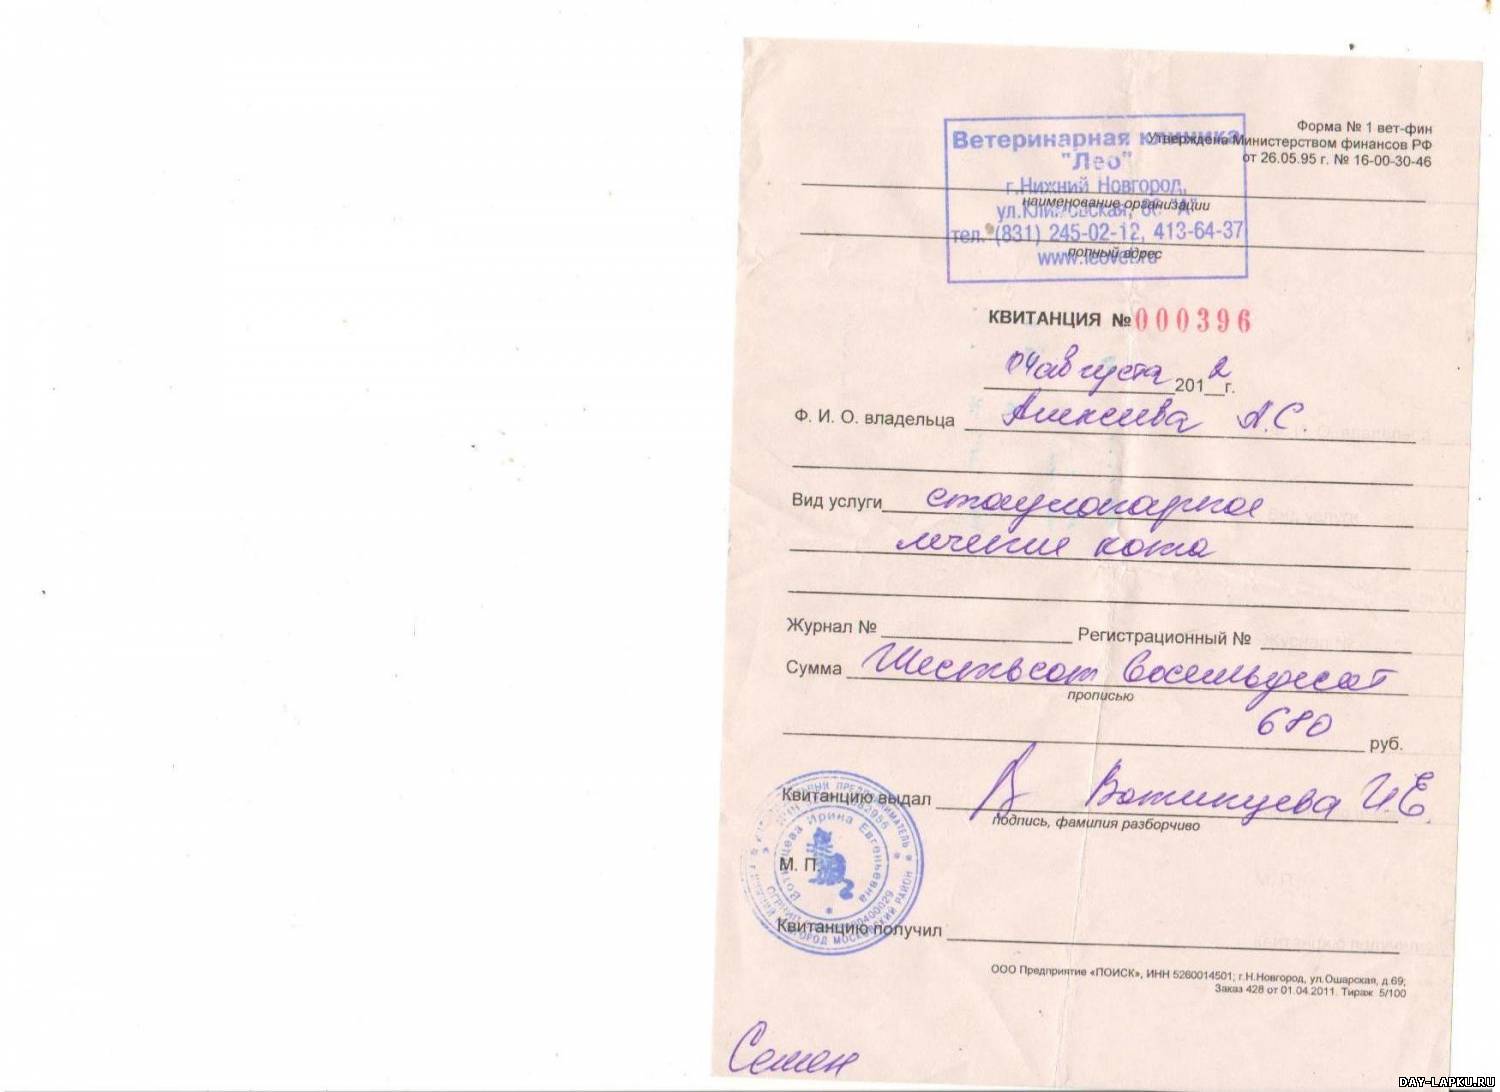 Форма № 1 вет-фин
Утверждена Министерством финансов РФ
от 26.05.95 г. № 16-00-30-46
Ветеринарная клиника
"Лео"
г.Нижний Новгород,
наименование организации
тел. (831) 245-02-12, 413-64-37
полный адрес
www.leovet.ru
КВИТАНЦИЯ № 000396
04 августа 2012 г.
Ф. И. О. владельца Алексеева А.С
Вид услуги стационарное
лечение кота
Журнал № Регистрационный №
Сумма Шестьсот восемьдесят
прописью
680 руб.
Квитанцию выдал Вотинцева И.Е.
подпись, фамилия разборчиво
Вотинцева Ирина Евгеньевна
М. П.
Квитанцию получил
ООО Предприятие «ПОИСК», ИНН 5260014501; г.Н.Новгород, ул.Ошарская, д.69;
Заказ 428 от 01.04.2011. Тираж 5/100
Семен
DAY-LAPKU.RU